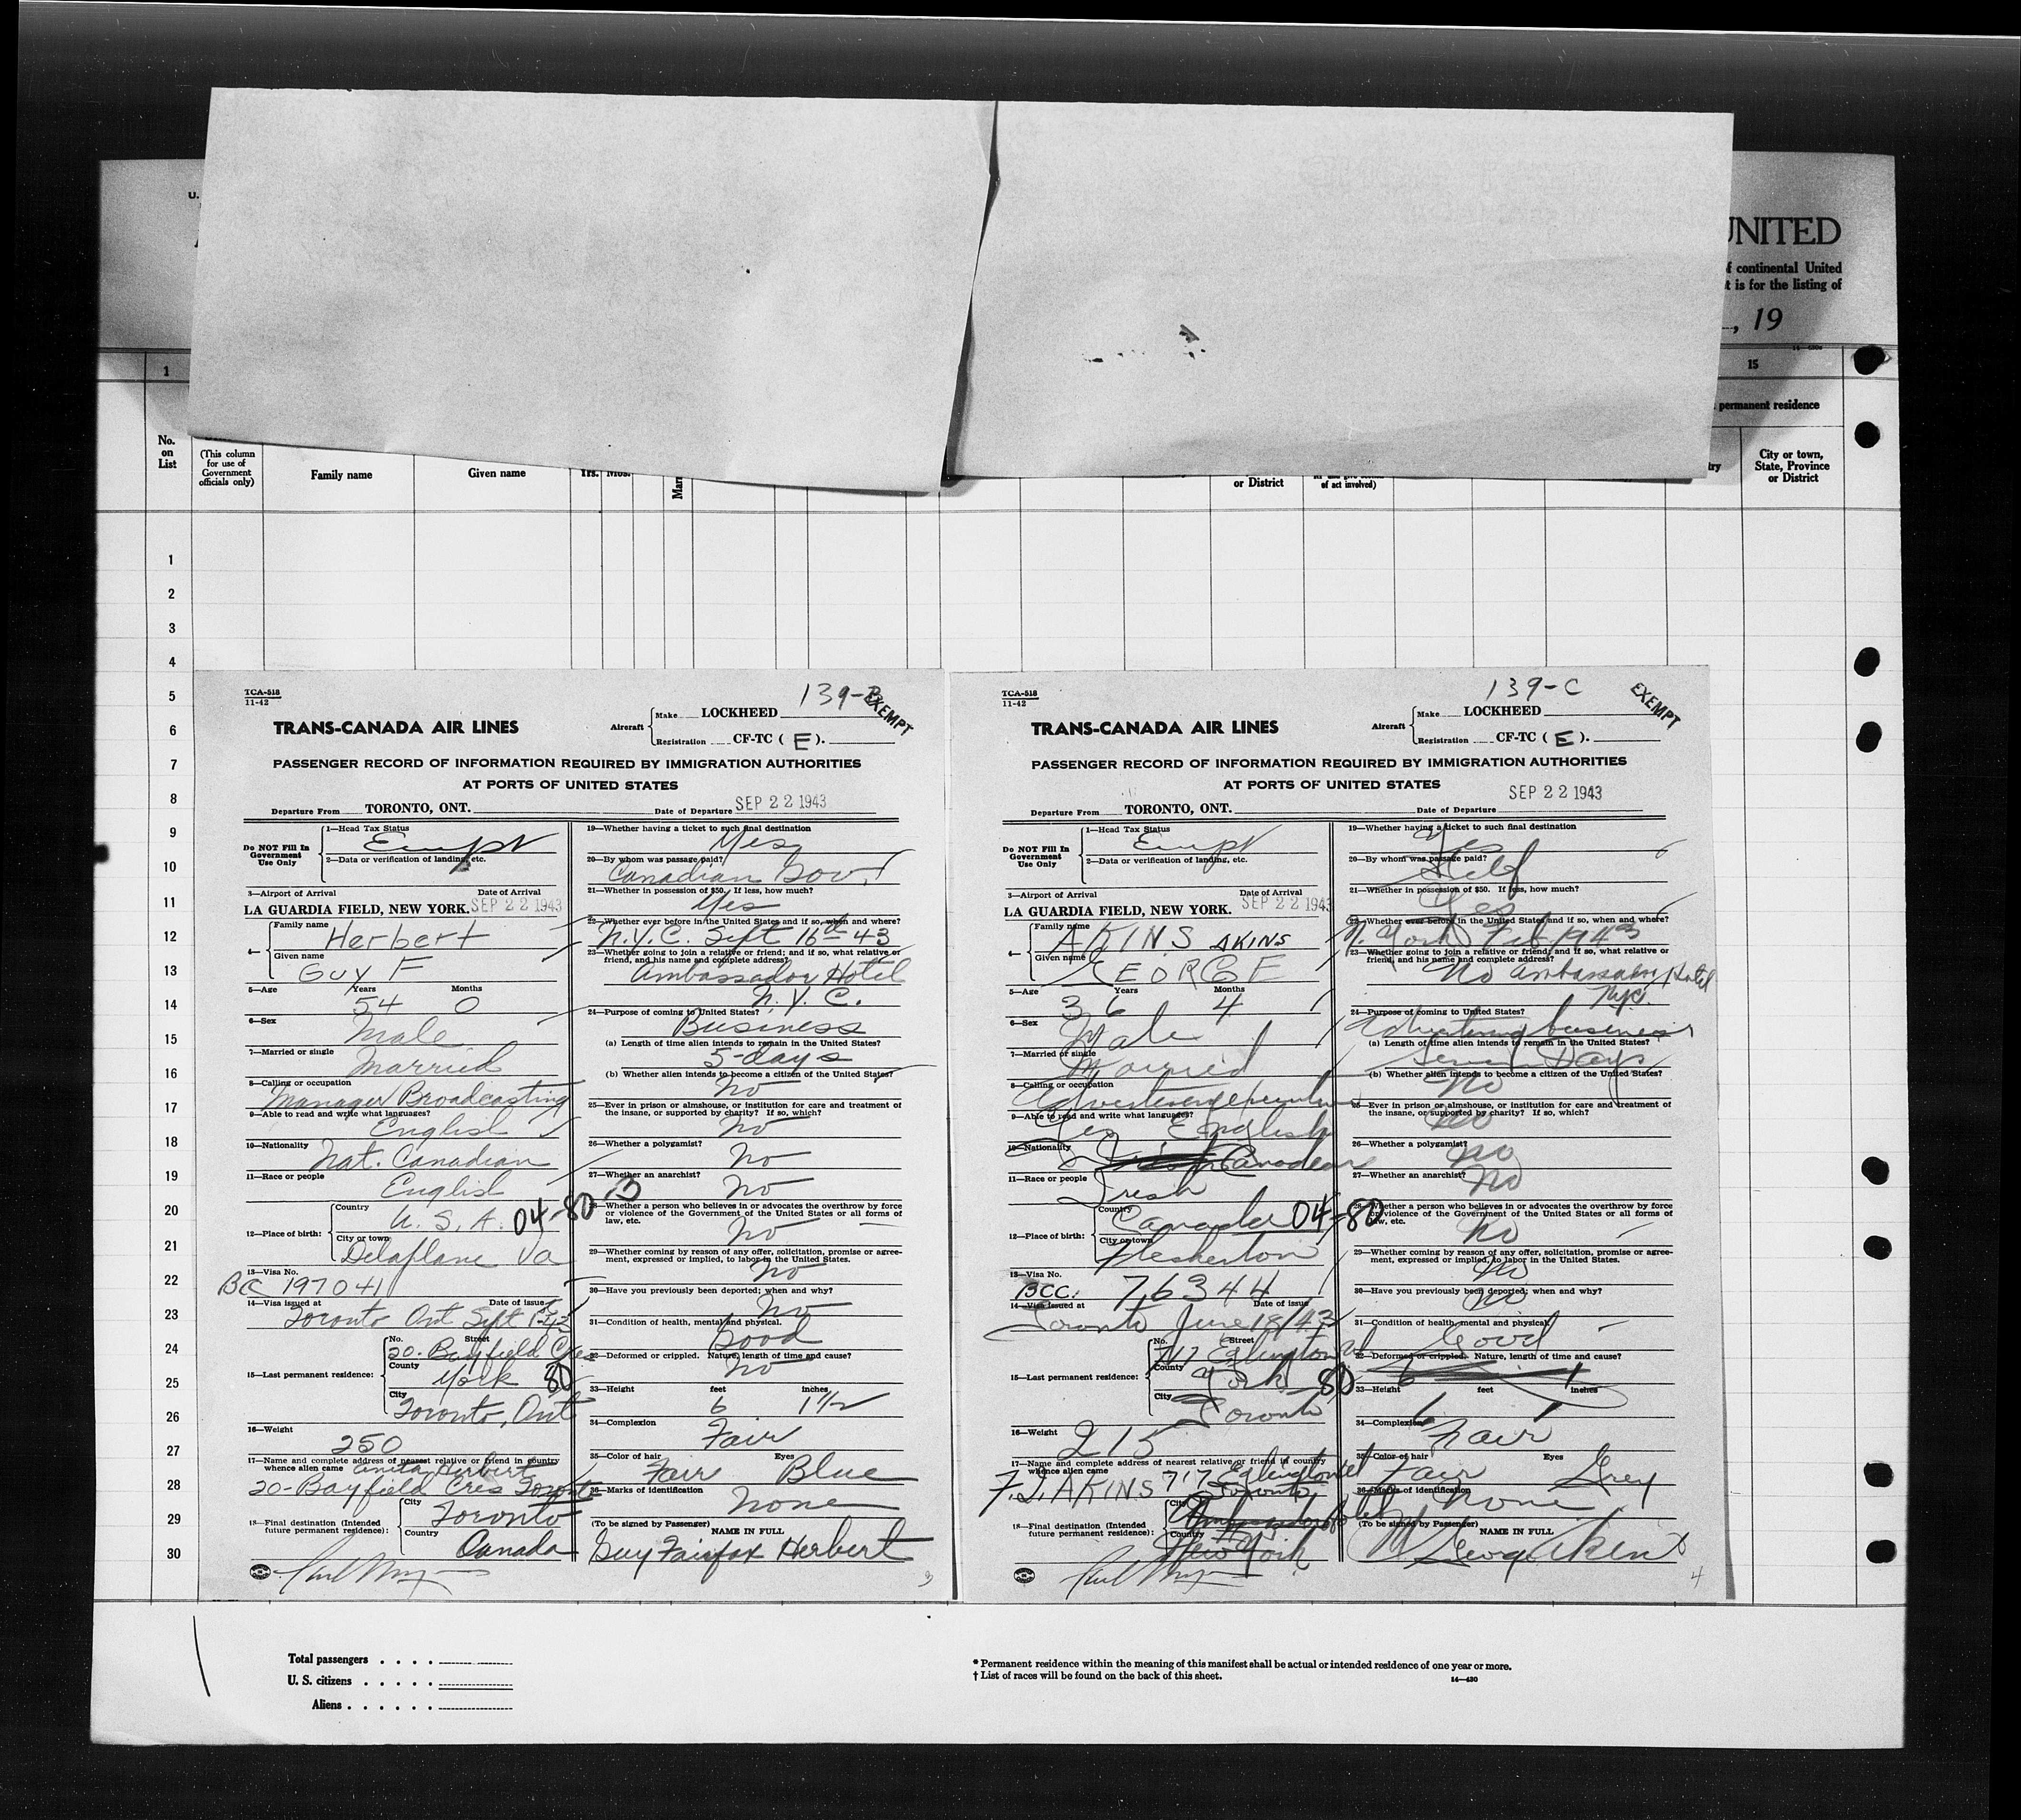 U.
UNITED
f continental United
t is for the listing of
, 19
1
15
permanent residence
No.
on
List
(This column
for use of
Government
officials only)
Family name
Given name
Yrs.
Mos.
or District
of act involved)
City or town,
State, Province
or District
1
2
3
4
5
6
7
8
9
10
11
12
13
14
15
16
17
18
19
20
21
22
23
24
25
26
27
28
29
30
TCA-518
11-42
139-B
EXEMPT
TRANS-CANADA AIR LINES
Aircraft
Make LOCKHEED
Registration CF-TC ( E ).
PASSENGER RECORD OF INFORMATION REQUIRED BY IMMIGRATION AUTHORITIES
AT PORTS OF UNITED STATES
Departure From TORONTO, ONT. Date of Departure SEP 22 1943
Do NOT Fill In
Government
Use Only
1—Head Tax Status
Exmpt
2—Data or verification of landing, etc.
3—Airport of Arrival Date of Arrival
LA GUARDIA FIELD, NEW YORK. SEP 22 1943
4— Family name
Herbert
Given name
Guy F
5—Age Years Months
54 0
6—Sex
Male
7—Married or single
Married
8—Calling or occupation
Manager Broadcasting
9—Able to read and write what languages?
English
10—Nationality
Nat. Canadian
11—Race or people
English
12—Place of birth:
Country
U.S.A. 04-80-3
City or town
Delaplane Va
13—Visa No.
BC 197041
14—Visa issued at Date of issue
Toronto Ont Sept 1-43
15—Last permanent residence:
No. Street
20-Bayfield Cres
County
York 80
City
Toronto, Ont
16—Weight
250
17—Name and complete address of nearest relative or friend in country
whence alien came Anita Herbert
20-Bayfield Cres Toronto
18—Final destination (Intended
future permanent residence):
City
Toronto
Country
Canada
19—Whether having a ticket to such final destination
Yes
20—By whom was passage paid?
Canadian Gov.
21—Whether in possession of $50. If less, how much?
Yes
22—Whether ever before in the United States and if so, when and where?
N.Y.C. Sept 16th 43
23—Whether going to join a relative or friend; and if so, what relative or
friend, and his name and complete address?
Ambassador Hotel
N.Y.C.
24—Purpose of coming to United States?
Business
(a) Length of time alien intends to remain in the United States?
5-days
(b) Whether alien intends to become a citizen of the United States?
No
25—Ever in prison or almshouse, or institution for care and treatment of
the insane, or supported by charity? If so, which?
No
26—Whether a polygamist?
No
27—Whether an anarchist?
No
28—Whether a person who believes in or advocates the overthrow by force
or violence of the Government of the United States or all forms of
law, etc.
No
29—Whether coming by reason of any offer, solicitation, promise or agree-
ment, expressed or implied, to labor in the United States.
No
30—Have you previously been deported; when and why?
No
31—Condition of health, mental and physical.
Good
32—Deformed or crippled. Nature, length of time and cause?
No
33—Height feet inches
6 1 1/2
34—Complexion
Fair
35—Color of hair Eyes
Fair Blue
36—Marks of identification
None
(To be signed by Passenger)
NAME IN FULL
Guy Fairfax Herbert
3
TCA-518
11-42
139-C
EXEMPT
TRANS-CANADA AIR LINES
Aircraft
Make LOCKHEED
Registration CF-TC ( E ).
PASSENGER RECORD OF INFORMATION REQUIRED BY IMMIGRATION AUTHORITIES
AT PORTS OF UNITED STATES
Departure From TORONTO, ONT. Date of Departure SEP 22 1943
Do NOT Fill In
Government
Use Only
1—Head Tax Status
Exmpt
2—Data or verification of landing, etc.
3—Airport of Arrival Date of Arrival
LA GUARDIA FIELD, NEW YORK. SEP 22 1943
4— Family name
AKINS AKINS
Given name
GEORGE
5—Age Years Months
36 4
6—Sex
Male
7—Married or single
Married
8—Calling or occupation
Advertising
9—Able to read and write what languages?
Yes English
10—Nationality
Canadian
11—Race or people
Irish
12—Place of birth:
Country
Canada 04-80
City or town
Flesherton
13—Visa No.
BCC. 76344
14—Visa issued at Date of issue
Toronto June 18/43
15—Last permanent residence:
No. Street
717 Eglington W
County
York 80
City
Toronto
16—Weight
215
17—Name and complete address of nearest relative or friend in country
whence alien came
F.J. AKINS 717 Eglington W
Toronto
18—Final destination (Intended
future permanent residence):
City
Ambassador Hotel
Country
New York
19—Whether having a ticket to such final destination
Yes
20—By whom was passage paid?
Self
21—Whether in possession of $50. If less, how much?
Yes
22—Whether ever before in the United States and if so, when and where?
N. York Feb 1943
23—Whether going to join a relative or friend; and if so, what relative or
friend, and his name and complete address?
No Ambassador Hotel
NYC.
24—Purpose of coming to United States?
Advertising business
(a) Length of time alien intends to remain in the United States?
Seven Days
(b) Whether alien intends to become a citizen of the United States?
No
25—Ever in prison or almshouse, or institution for care and treatment of
the insane, or supported by charity? If so, which?
No
26—Whether a polygamist?
No
27—Whether an anarchist?
No
28—Whether a person who believes in or advocates the overthrow by force
or violence of the Government of the United States or all forms of
law, etc.
No
29—Whether coming by reason of any offer, solicitation, promise or agree-
ment, expressed or implied, to labor in the United States.
No
30—Have you previously been deported; when and why?
No
31—Condition of health, mental and physical.
Good
32—Deformed or crippled. Nature, length of time and cause?
33—Height feet inches
6 1
34—Complexion
Fair
35—Color of hair Eyes
Fair Grey
36—Marks of identification
None
(To be signed by Passenger)
NAME IN FULL
George Akins
4
Total passengers
U. S. citizens
Aliens
* Permanent residence within the meaning of this manifest shall be actual or intended residence of one year or more.
† List of races will be found on the back of this sheet.
14—430